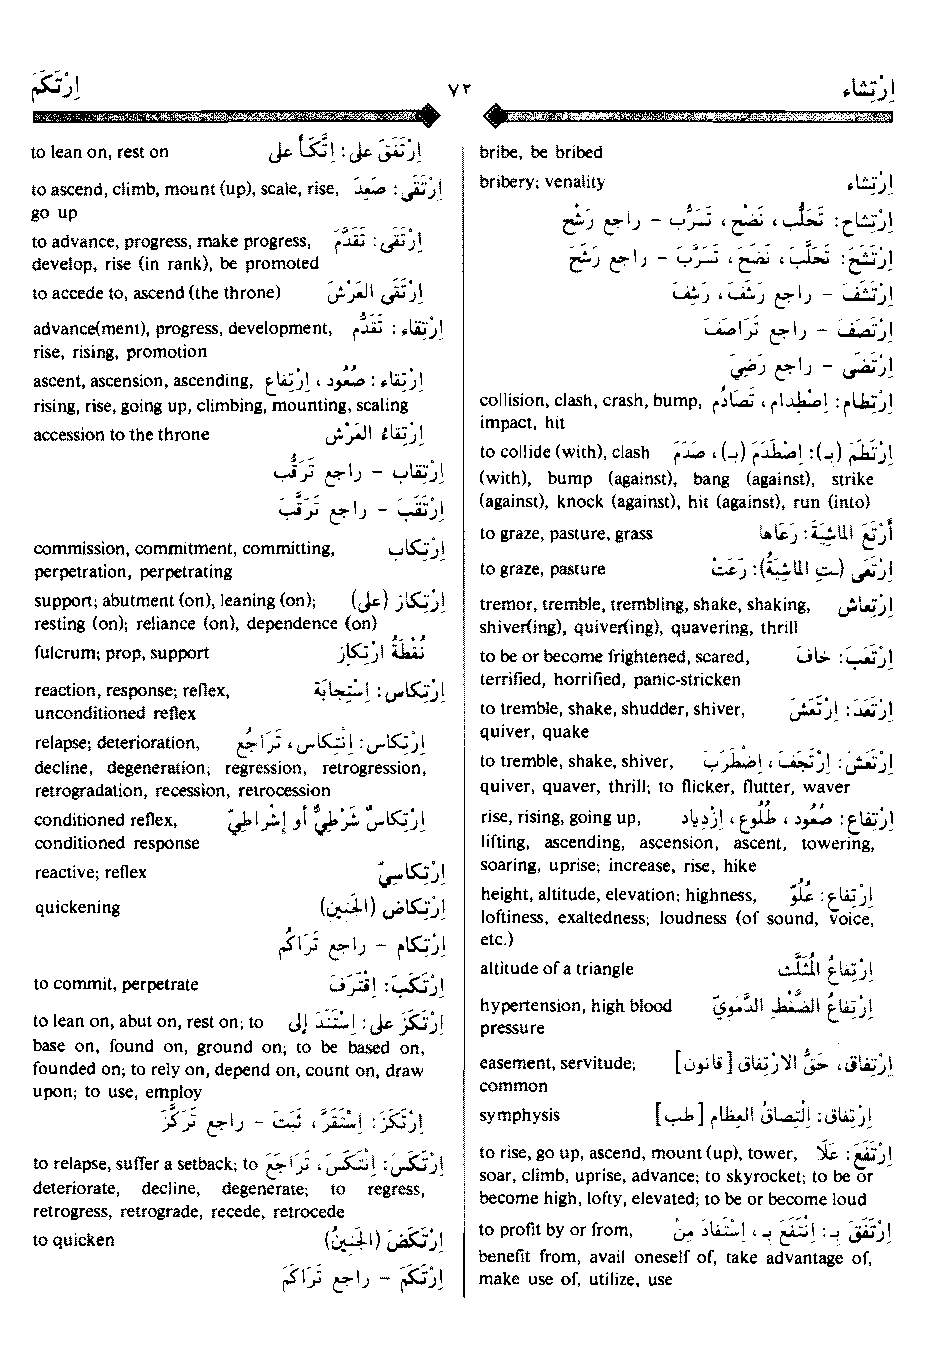 اِرْتِشَاء ٧٢ اِرْتَكَمَ
bribe, be bribed
اِرْتِشَاء bribery; venality
اِرْتِشَاح: تَحَلُّب، نَضْح، تَسَرُّب - راجع رَشْح
اِرْتَشَحَ: تَحَلَّبَ، نَضَحَ، تَسَرَّبَ - راجع رَشَحَ
اِرْتَشَفَ - راجع رَشَفَ، رَشِفَ
اِرْتَصَفَ - راجع تَرَاصَفَ
اِرْتَضَى - راجع رَضِيَ
اِرْتِطَام: اِصْطِدَام، تَصَادُم collision, clash, crash, bump,
impact, hit
اِرْتَطَمَ (بـ): اِصْطَدَمَ (بـ)، صَدَمَ to collide (with), clash
(with), bump (against), bang (against), strike
(against), knock (against), hit (against), run (into)
أَرْتَعَ المَاشِيَةَ: رَعَاهَا to graze, pasture, grass
اِرْتَعَى (ـتِ المَاشِيَةُ): رَعَتْ to graze, pasture
اِرْتِعَاش tremor, tremble, trembling, shake, shaking,
shiver(ing), quiver(ing), quavering, thrill
اِرْتَعَبَ: خَافَ to be or become frightened, scared,
terrified, horrified, panic-stricken
اِرْتَعَدَ: اِرْتَعَشَ to tremble, shake, shudder, shiver,
quiver, quake
اِرْتَعَشَ: اِرْتَجَفَ، اِضْطَرَبَ to tremble, shake, shiver,
quiver, quaver, thrill; to flicker, flutter, waver
اِرْتِفَاع: صُعُود، طُلُوع، اِزْدِيَاد rise, rising, going up,
lifting, ascending, ascension, ascent, towering,
soaring, uprise; increase, rise, hike
اِرْتِفَاع: عُلُوّ height, altitude, elevation; highness,
loftiness, exaltedness; loudness (of sound, voice,
etc.)
اِرْتِفَاعُ المُثَلَّث altitude of a triangle
اِرْتِفَاعُ الضَّغْطِ الدَّمَوِيّ hypertension, high blood
pressure
اِرْتِفَاق، حَقُّ الاِرْتِفَاق [قانون] easement, servitude;
common
اِرْتِفَاق: اِلْتِصَاقُ العِظَام [طب] symphysis
اِرْتَفَعَ: عَلَا to rise, go up, ascend, mount (up), tower,
soar, climb, uprise, advance; to skyrocket; to be or
become high, lofty, elevated; to be or become loud
اِرْتَفَقَ بِـ: اِنْتَفَعَ بِـ، اِسْتَفَادَ مِنْ to profit by or from,
benefit from, avail oneself of, take advantage of,
make use of, utilize, use
اِرْتَفَقَ على: اِتَّكَأَ على to lean on, rest on
اِرْتَقَى: صَعِدَ to ascend, climb, mount (up), scale, rise,
go up
اِرْتَقَى: تَقَدَّمَ to advance, progress, make progress,
develop, rise (in rank), be promoted
اِرْتَقَى العَرْشَ to accede to, ascend (the throne)
اِرْتِقَاء: تَقَدُّم advance(ment), progress, development,
rise, rising, promotion
اِرْتِقَاء: صُعُود، اِرْتِفَاع ascent, ascension, ascending,
rising, rise, going up, climbing, mounting, scaling
اِرْتِقَاءُ العَرْش accession to the throne
اِرْتِقَاب - راجع تَرَقُّب
اِرْتَقَبَ - راجع تَرَقَّبَ
اِرْتِكَاب commission, commitment, committing,
perpetration, perpetrating
اِرْتِكَاز (على) support; abutment (on), leaning (on);
resting (on); reliance (on), dependence (on)
نُقْطَةُ اِرْتِكَاز fulcrum; prop, support
اِرْتِكَاس: اِسْتِجَابَة reaction, response; reflex,
unconditioned reflex
اِرْتِكَاس: اِنْتِكَاس، تَرَاجُع relapse; deterioration,
decline, degeneration; regression, retrogression,
retrogradation, recession, retrocession
اِرْتِكَاسٌ شَرْطِيٌّ أو إشْرَاطِيّ conditioned reflex,
conditioned response
اِرْتِكَاسِيّ reactive; reflex
اِرْتِكَاض (الجَنِين) quickening
اِرْتِكَام - راجع تَرَاكُم
اِرْتَكَبَ: اِقْتَرَفَ to commit, perpetrate
اِرْتَكَزَ على: اِسْتَنَدَ إلى to lean on, abut on, rest on; to
base on, found on, ground on; to be based on,
founded on; to rely on, depend on, count on, draw
upon; to use, employ
اِرْتَكَزَ: اِسْتَقَرَّ، ثَبَتَ - راجع تَرَكَّزَ
اِرْتَكَسَ: اِنْتَكَسَ، تَرَاجَعَ to relapse, suffer a setback; to
deteriorate, decline, degenerate; to regress,
retrogress, retrograde, recede, retrocede
اِرْتَكَضَ (الجَنِينُ) to quicken
اِرْتَكَمَ - راجع تَرَاكَمَ